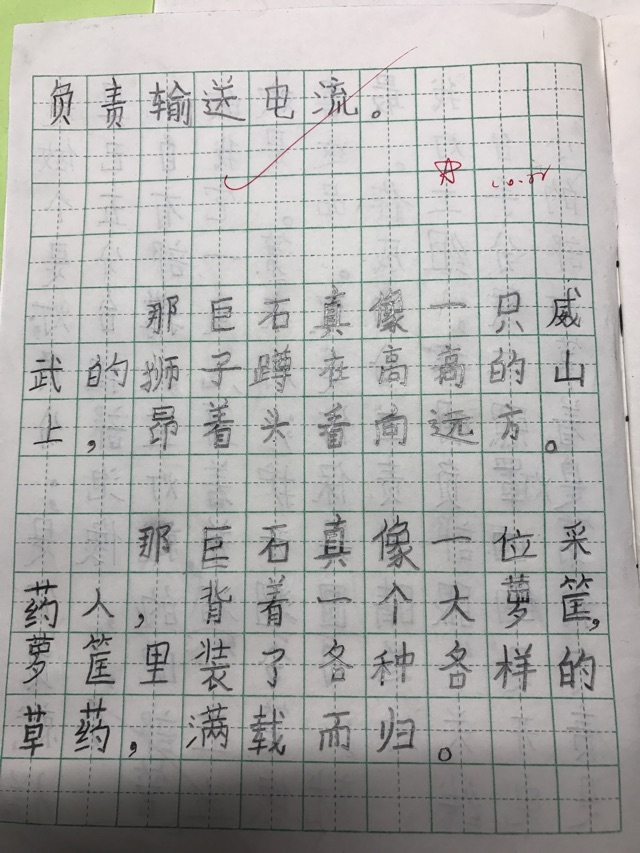 负责输送电流。
那巨石真像一只威
武的狮子蹲在高高的山
上，昂着头看向远方。
那巨石真像一位采
药人，背着一个大萝筐，
萝筐里装了各种各样的
草药，满载而归。